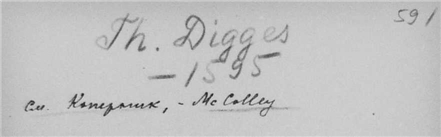 591
Th. Digges
— 1595
см. Коперник, — McColley